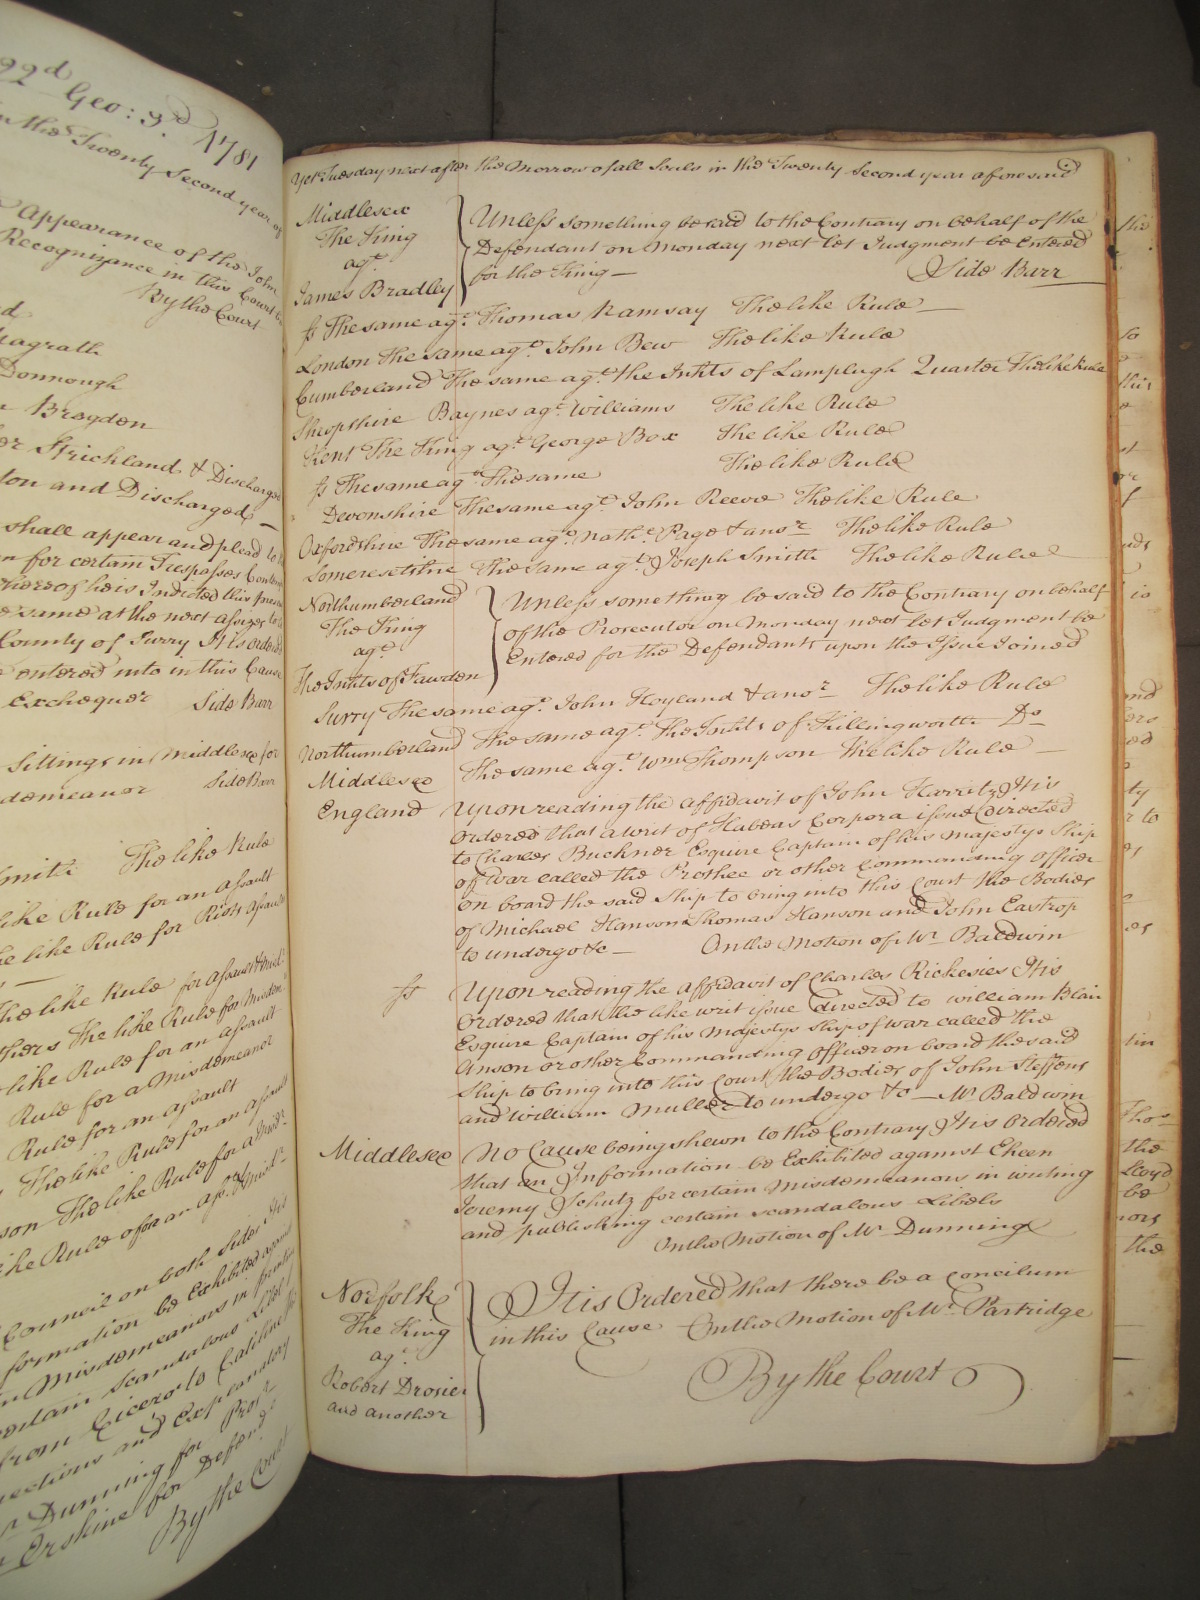 22d Geo: 3d 1781
Twenty Second year of
Appearance of the John
Recognizance in this Court
By the Court
Magrath
Donnough
Brogden
Strickland & Discharged
ton and Discharged
shall appear and plead to
for certain Trespasses
thereof he is Indicted this
same at the next assizes
County of Surry It is ordered
entered into in this Cause
Exchequer Side Barr
Sittings in Middlesex for
demeanor Side Barr
Smith The like Rule
like Rule for an assault
like Rule for Riot assault
The like Rule for assault
thers The like Rule for
like Rule for an assault
Rule for a Misdemeanor
Rule for an assault
The like Rule for an assault
son The like Rule for
like Rule for an
Council on both sides It is
formation be Exhibited against
Misdemeanours in
certain Scandalous Libel
from Cicero to Catiline
and Explanatory
Dunning for
Erskine for Defend
By the Court
Yet Tuesday next after the Morrow of all Souls in the Twenty Second year aforesaid
Middlesex
The King
agt
James Bradley
Unless something be said to the Contrary on behalf of the
Defendant on Monday next let Judgment be Entered
for the King —
Side Barr
ss The same agt Thomas Ramsay The like Rule —
London The same agt John Bew The like Rule
Cumberland The same agt the Inhts of Lamplugh Quarter The like Rule
Shropshire Baynes agt Williams The like Rule
Kent The King agt George Box The like Rule
ss The same agt The same The like Rule
Devonshire The same agt John Reeve The like Rule
Oxfordshire The same agt Nathl Page & anor The like Rule
Somersetshire The same agt Joseph Smith The like Rule
Northumberland
The King
agt
The Inhts of Fawdon
Unless something be said to the Contrary on behalf
of the Prosecutor on Monday next let Judgment be
Entered for the Defendants upon the Issue Joined
Surry The same agt John Hoyland & anor The like Rule
Northumberland The same agt The Inhts of Killingworth Do
Middlesex The same agt Wm Thompson The like Rule
England Upon reading the affidavit of John It is
Ordered that a writ of Habeas Corpora issue Directed
to Charles Buckner Esquire Captain of his Majestys Ship
of War called the Prothee or other Commanding Officer
on board the said Ship to bring into this Court the Bodies
of Michael Hanson Thomas Hanson and John Eastrop
to undergo &c — On the Motion of Mr Baldwin
ss Upon reading the affidavit of Charles Rickesies It is
Ordered that the like writ issue directed to William Blair
Esquire Captain of his Majestys Ship of war called the
Anson or other Commanding Officer on board the said
Ship to bring into this Court the Bodies of John Steffens
and William Muller to undergo &c — Mr Baldwin
Middlesex No Cause being shewn to the Contrary It is Ordered
that an Information be Exhibited against Eheen
Jeremy Schutz for certain Misdemeanors in writing
and publishing certain scandalous Libels
On the Motion of Mr Dunning
Norfolk
The King
agt
Robert Drosier
and another
It is Ordered that there be a Concilium
in this Cause On the Motion of Mr Partridge
By the Court